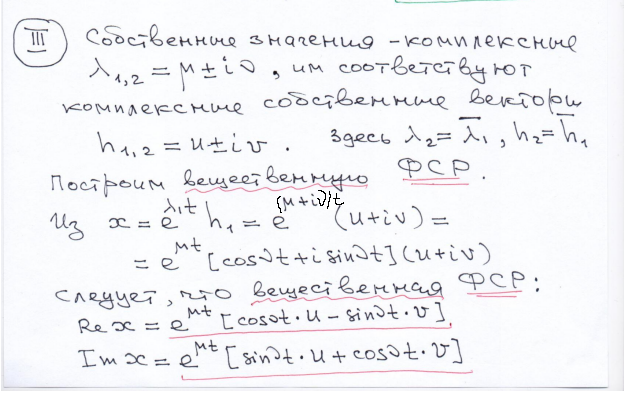 III Собственные значения - комплексные
λ₁,₂ = μ ± iν, им соответствуют
комплексные собственные векторы
h₁,₂ = u ± iv. Здесь λ₂ = λ̅₁, h₂ = h̅₁
Построим вещественную ФСР.
Из x = e^{λ₁t} h₁ = e^{(μ+iν)t} (u+iv) =
= e^{μt} [cosνt + i sinνt] (u+iv)
следует, что вещественная ФСР:
Re x = e^{μt} [cosνt · u − sinνt · v],
Im x = e^{μt} [sinνt · u + cosνt · v]